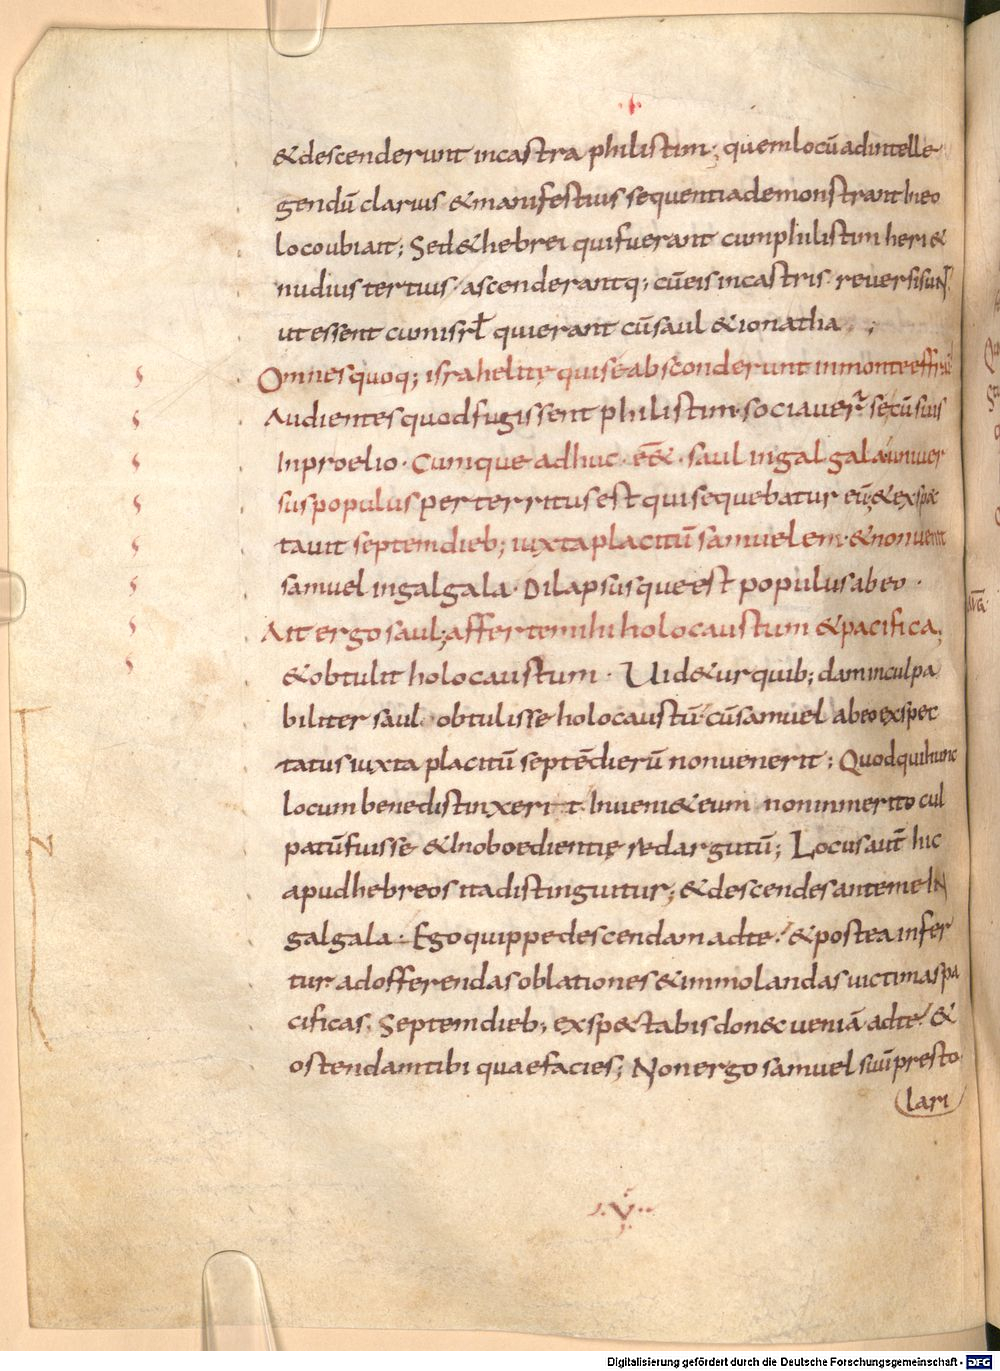 & descenderunt in castra philistim; quem locū ad intelle
gendū clarius & manifestius sequentia demonstrant In eo
loco ubi ait; Sed & hebrei qui fuerant cum philistim heri &
nudius tertius· ascenderantq; cū eis in castris· reversi sunt
ut essent cum isrł qui erant cū saul & ionatha ;
Omnes quoq; israhelitę qui se absconderunt in monte effraī
Audientes quod fugissent philistim· sociauer̄ se cū suis
In proelio· Cumque adhuc· eē&· saul in galgala· uniuer
sus populus perterritus est qui sequebatur eū; & exspec
tauit septem dieb; iuxta placitū samuelem· & non uenit
samuel in galgala· Dilapsusque est populus ab eo·
Ait ergo saul; afferte mihi holocaustum & pacifica;
& obtulit holocaustum· Uid&ur quib;dam inculpa
biliter saul· obtulisse holocaustū· cū samuel ab eo exspec
tatus iuxta placitū septē dierū non uenerit; Quod qui hunc
locum bene distinxerit· Inueni& eum non inmerito cul
patū fuisse & Inoboedientię redargutū; Locus aut̄ hic
apud hebreos ita distinguitur; & descendes ante me IN
galgala· Ego quippe descendam ad te· & postea infer
tur ad offerendas oblationes & immolandas uictimas pa
cificas· Septem dieb; exspectabis donec ueniā ad te· &
ostendam tibi quae facies; Non ergo samuel suū presto
lari
·V·
Digitalisierung gefördert durch die Deutsche Forschungsgemeinschaft - DFG